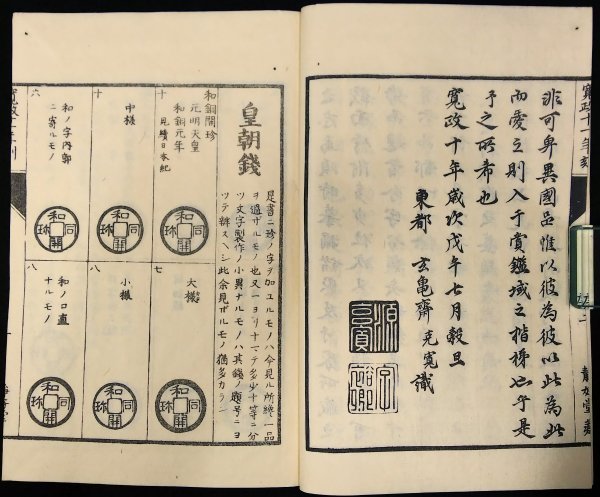 非可卑異國品惟以彼為彼以此為此
而愛之則入于賞鑑域之楷梯也乎是
予之所希也
寛政十年歳次戊午七月穀旦
東都 玄亀齋 克寛識
皇朝錢
是書ニ珍ノ字ヲ加エルモノハ今見ル所纔一品
ヲ過ザルモノ也又一ヨリ十マデ多少十等ニ分
ツ文字製作ノ小異ナルモノハ其錢ノ題号ニヨ
ツテ辨スヘシ此余見ザルモノ猶多カラン
和銅開珍
元明天皇
和銅元年
十 見續日本紀
和同開珎
七 大様
和同開珎
十 中様
和同開珎
八 小様
和同開珎
六 和ノ字内郭
ニ寄ルモノ
和同開珎
八 和ノ口直
ナルモノ
和同開珎